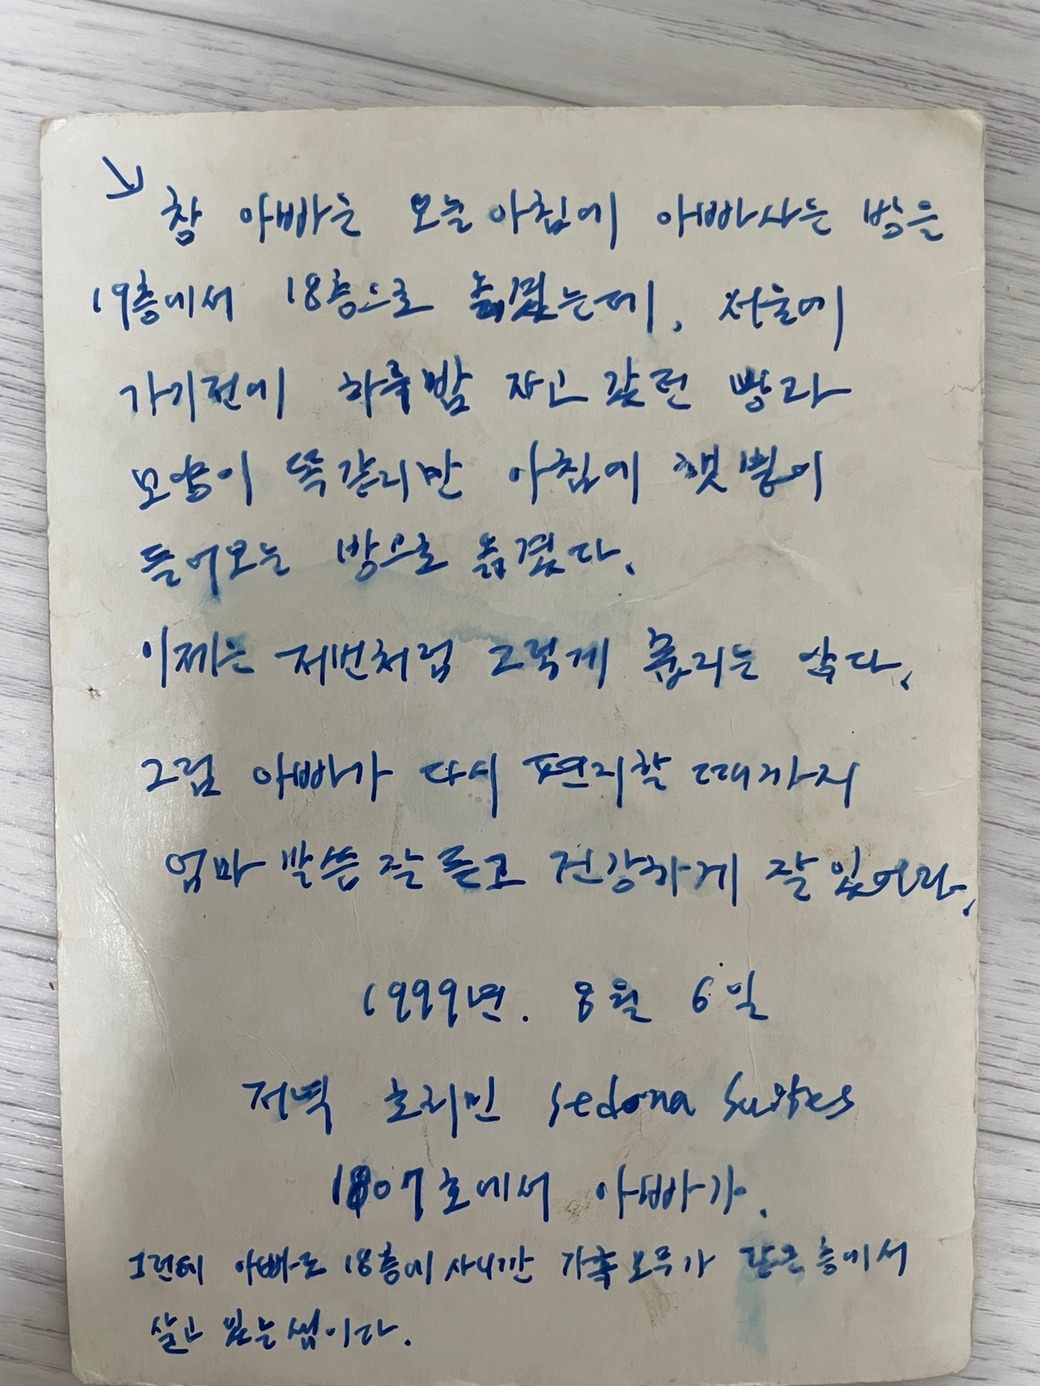 참 아빠는 오늘 아침에 아빠사는 방을
19층에서 18층으로 옮겼는데, 서울에
가기전에 하룻밤 자고 갔던 방과
모양이 똑같지만 아침에 햇빛이
들어오는 방으로 옮겼다.
이제는 저번처럼 그렇게 춥지는 않다.
그럼 아빠가 다시 편지할 때까지
엄마 말씀 잘 듣고 건강하게 잘 있어라.
1999년. 8월 6일
저녁 호치민 Sedona Suites
1807호에서 아빠가.
그런데 아빠도 18층에 사니깐 가족 모두가 같은 층에서
살고 있는 셈이다.